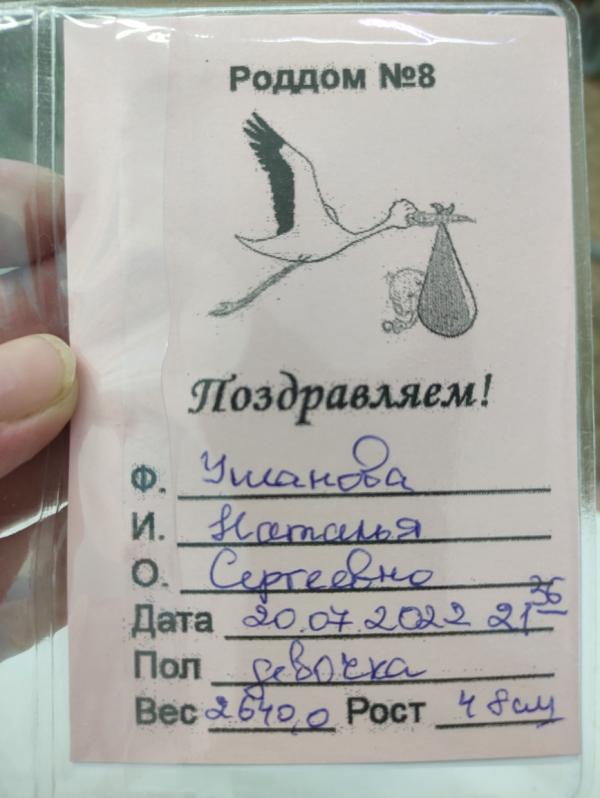 Роддом №8
Поздравляем!
Ф. Ушанова
И. Наталья
О. Сергеевна
Дата 20.07.2022 21 36
Пол девочка
Вес 2640,0 Рост 48см